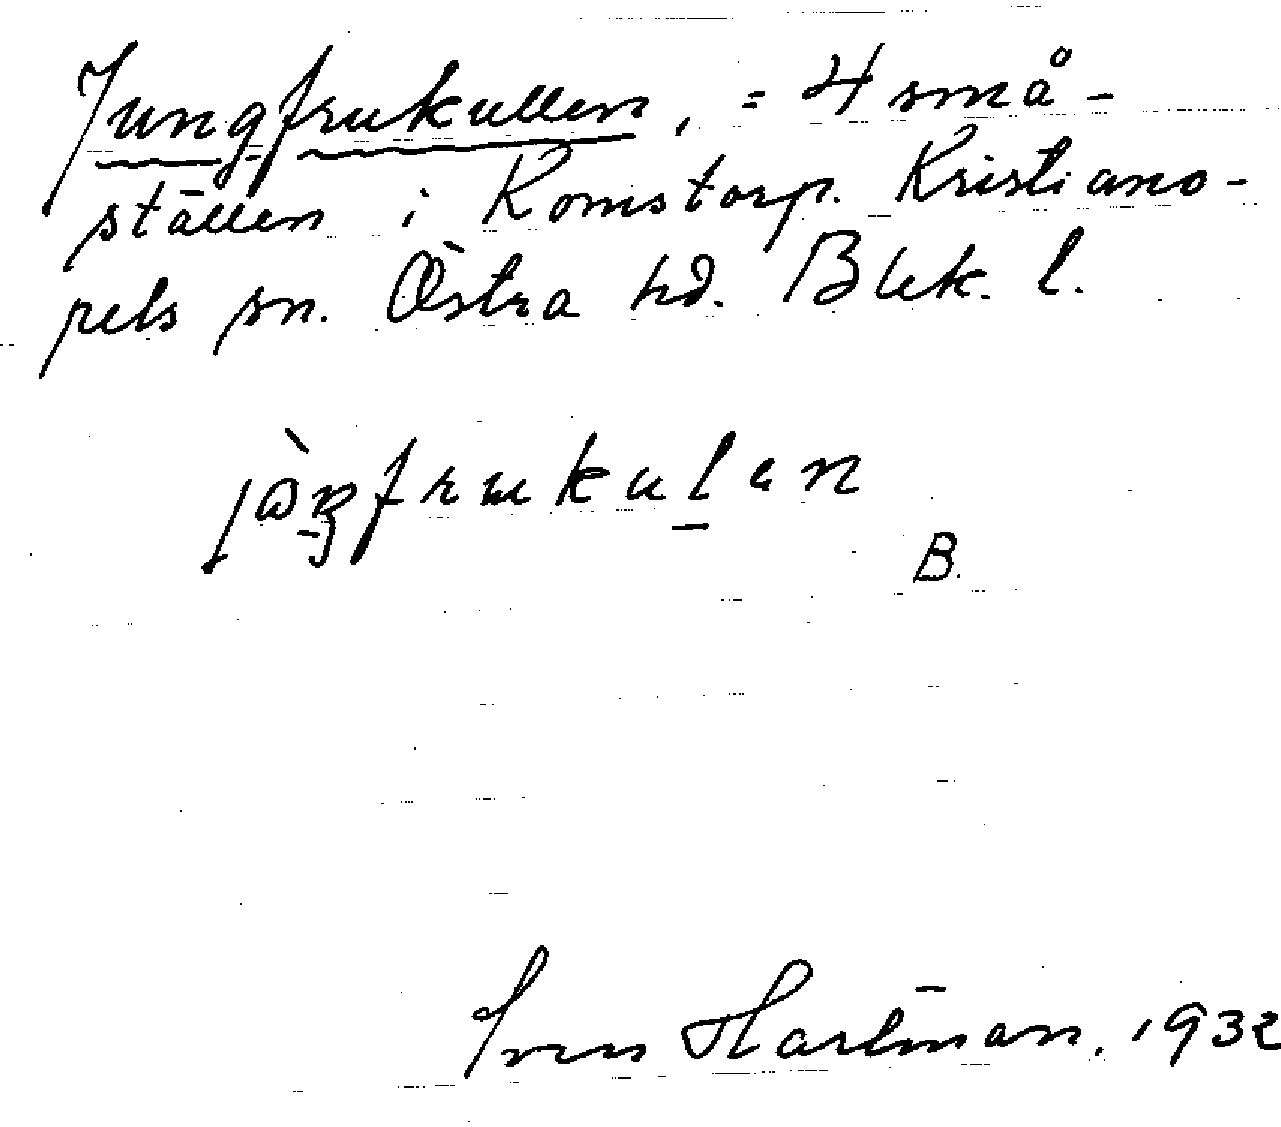 Jungfrukullen, = 4 små-
ställen i Romstorp. Kristiano-
pels sn. Östra hd. Blek. l.
B.
Sven Hartman, 1932